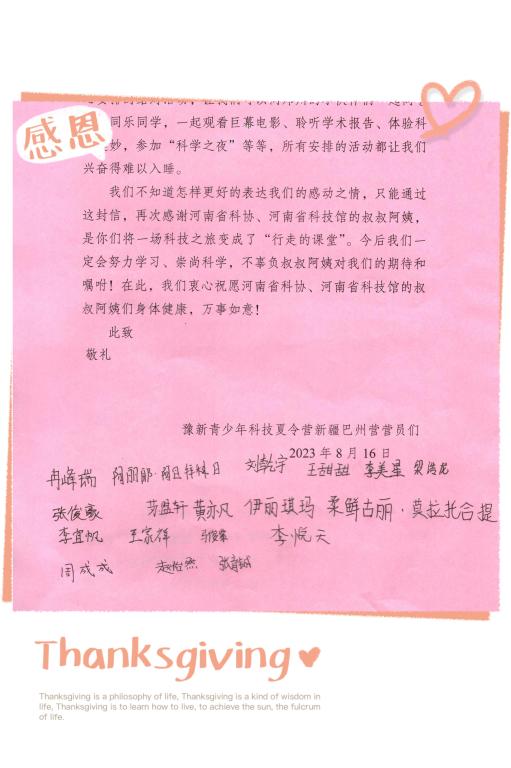 感恩
同乐同学，一起观看巨幕电影、聆听学术报告、体验科
妙，参加“科学之夜”等等，所有安排的活动都让我们
兴奋得难以入睡。
我们不知道怎样更好的表达我们的感动之情，只能通过
这封信，再次感谢河南省科协、河南省科技馆的叔叔阿姨，
是你们将一场科技之旅变成了“行走的课堂”。今后我们一
定会努力学习、崇尚科学，不辜负叔叔阿姨对我们的期待和
嘱咐！在此，我们衷心祝愿河南省科协、河南省科技馆的叔
叔阿姨们身体健康，万事如意！
此致
敬礼
豫新青少年科技夏令营新疆巴州营营员们
2023年8月16日
冉峰瑞 刘乾宇 王甜甜 李美星
张俊豪 黄亦凡 伊丽琪玛 柔鲜古丽·莫拉托合提
李宜帆 王家祥 李悦天
周成成 赵怡然
Thanksgiving
Thanksgiving is a philosophy of life, Thanksgiving is a kind of wisdom in
life, Thanksgiving is to learn how to live, to achieve the sun, the fulcrum
of life.